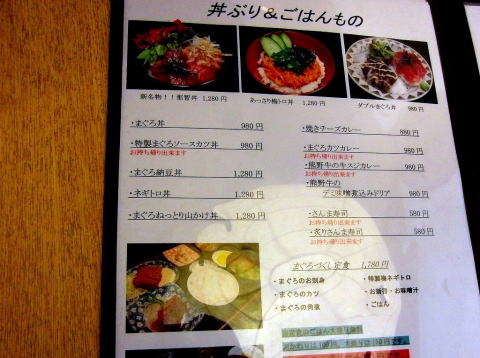 丼ぶり＆ごはんもの
新名物！！那智丼 1,280円
あっさり梅トロ丼 1,280円
ダブルまぐろ丼 980円
・まぐろ丼 980円
・特製まぐろソースカツ丼 980円
お持ち帰り出来ます
・まぐろ納豆丼 1,280円
・ネギトロ丼 1,280円
・まぐろねっとり山かけ丼 1,280円
・焼きチーズカレー 880円
・まぐろカツカレー 980円
お持ち帰り出来ます
・熊野牛のキスジカレー 980円
お持ち帰り出来ます
・熊野牛の
デミ味噌煮込みドリア 980円
・さんま寿司 580円
お持ち帰り出来ます
・炙りさんま寿司 580円
お持ち帰り出来ます
まぐろづくし定食 1,780円
・まぐろのお刺身
・まぐろのカツ
・まぐろの角煮
・特製梅ネギトロ
・お新香・お味噌汁
・ごはん